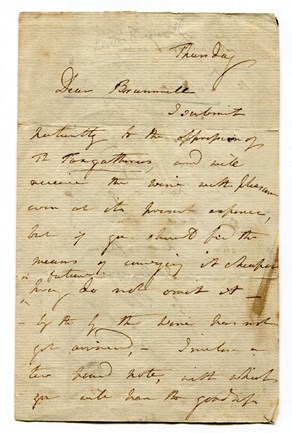 Thursday
Dear Brummell
I submit
patiently to the oppression of
the Taxgatherers, and will
receive the wine with pleasure
even at its present expence,
but if you should find the
means of conveying it cheaper
in future
pray do not omit it —
— by the by the wine has not
got arrived, — I inclose a
two pound note, with which
you will have the goodness